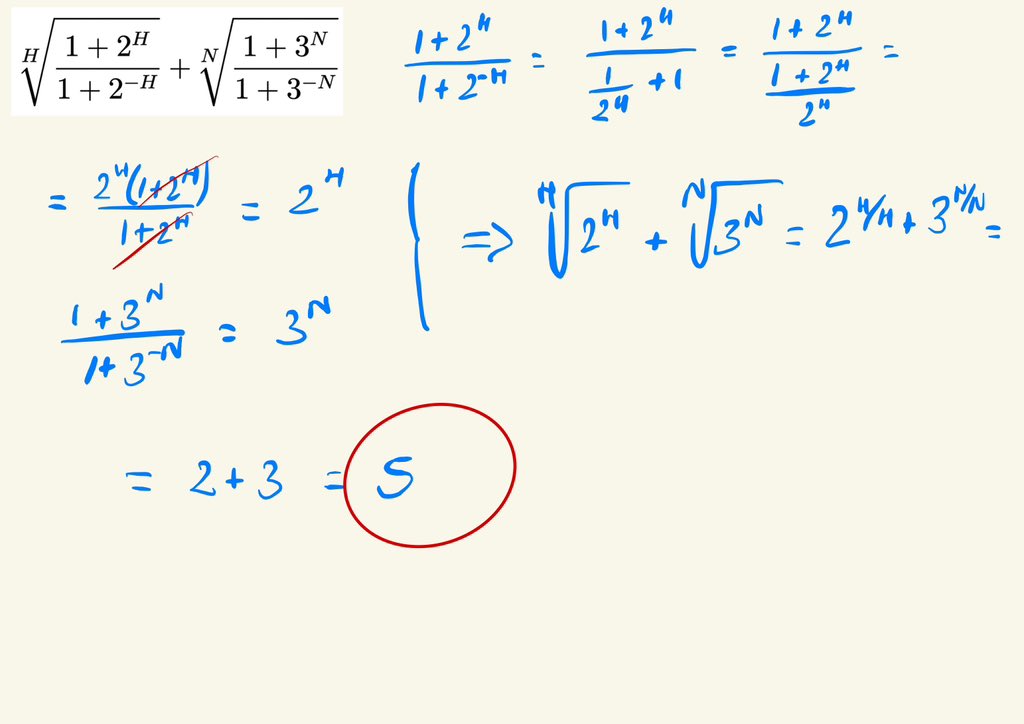 \sqrt[H]{\frac{1+2^H}{1+2^{-H}}} + \sqrt[N]{\frac{1+3^N}{1+3^{-N}}}
\frac{1+2^H}{1+2^{-H}} = \frac{1+2^H}{\frac{1}{2^H}+1} = \frac{1+2^H}{\frac{1+2^H}{2^H}} =
= \frac{2^H(1+2^H)}{1+2^H} = 2^H
\frac{1+3^N}{1+3^{-N}} = 3^N
⇒ \sqrt[H]{2^H} + \sqrt[N]{3^N} = 2^{H/H} + 3^{N/N} =
= 2+3 = 5